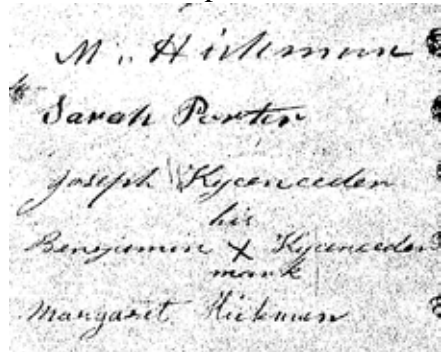 M. Hickman
Sarah Porter
Joseph Kyceneeder
his
Benjamin X Kyceneeder
mark
Margaret Hickman